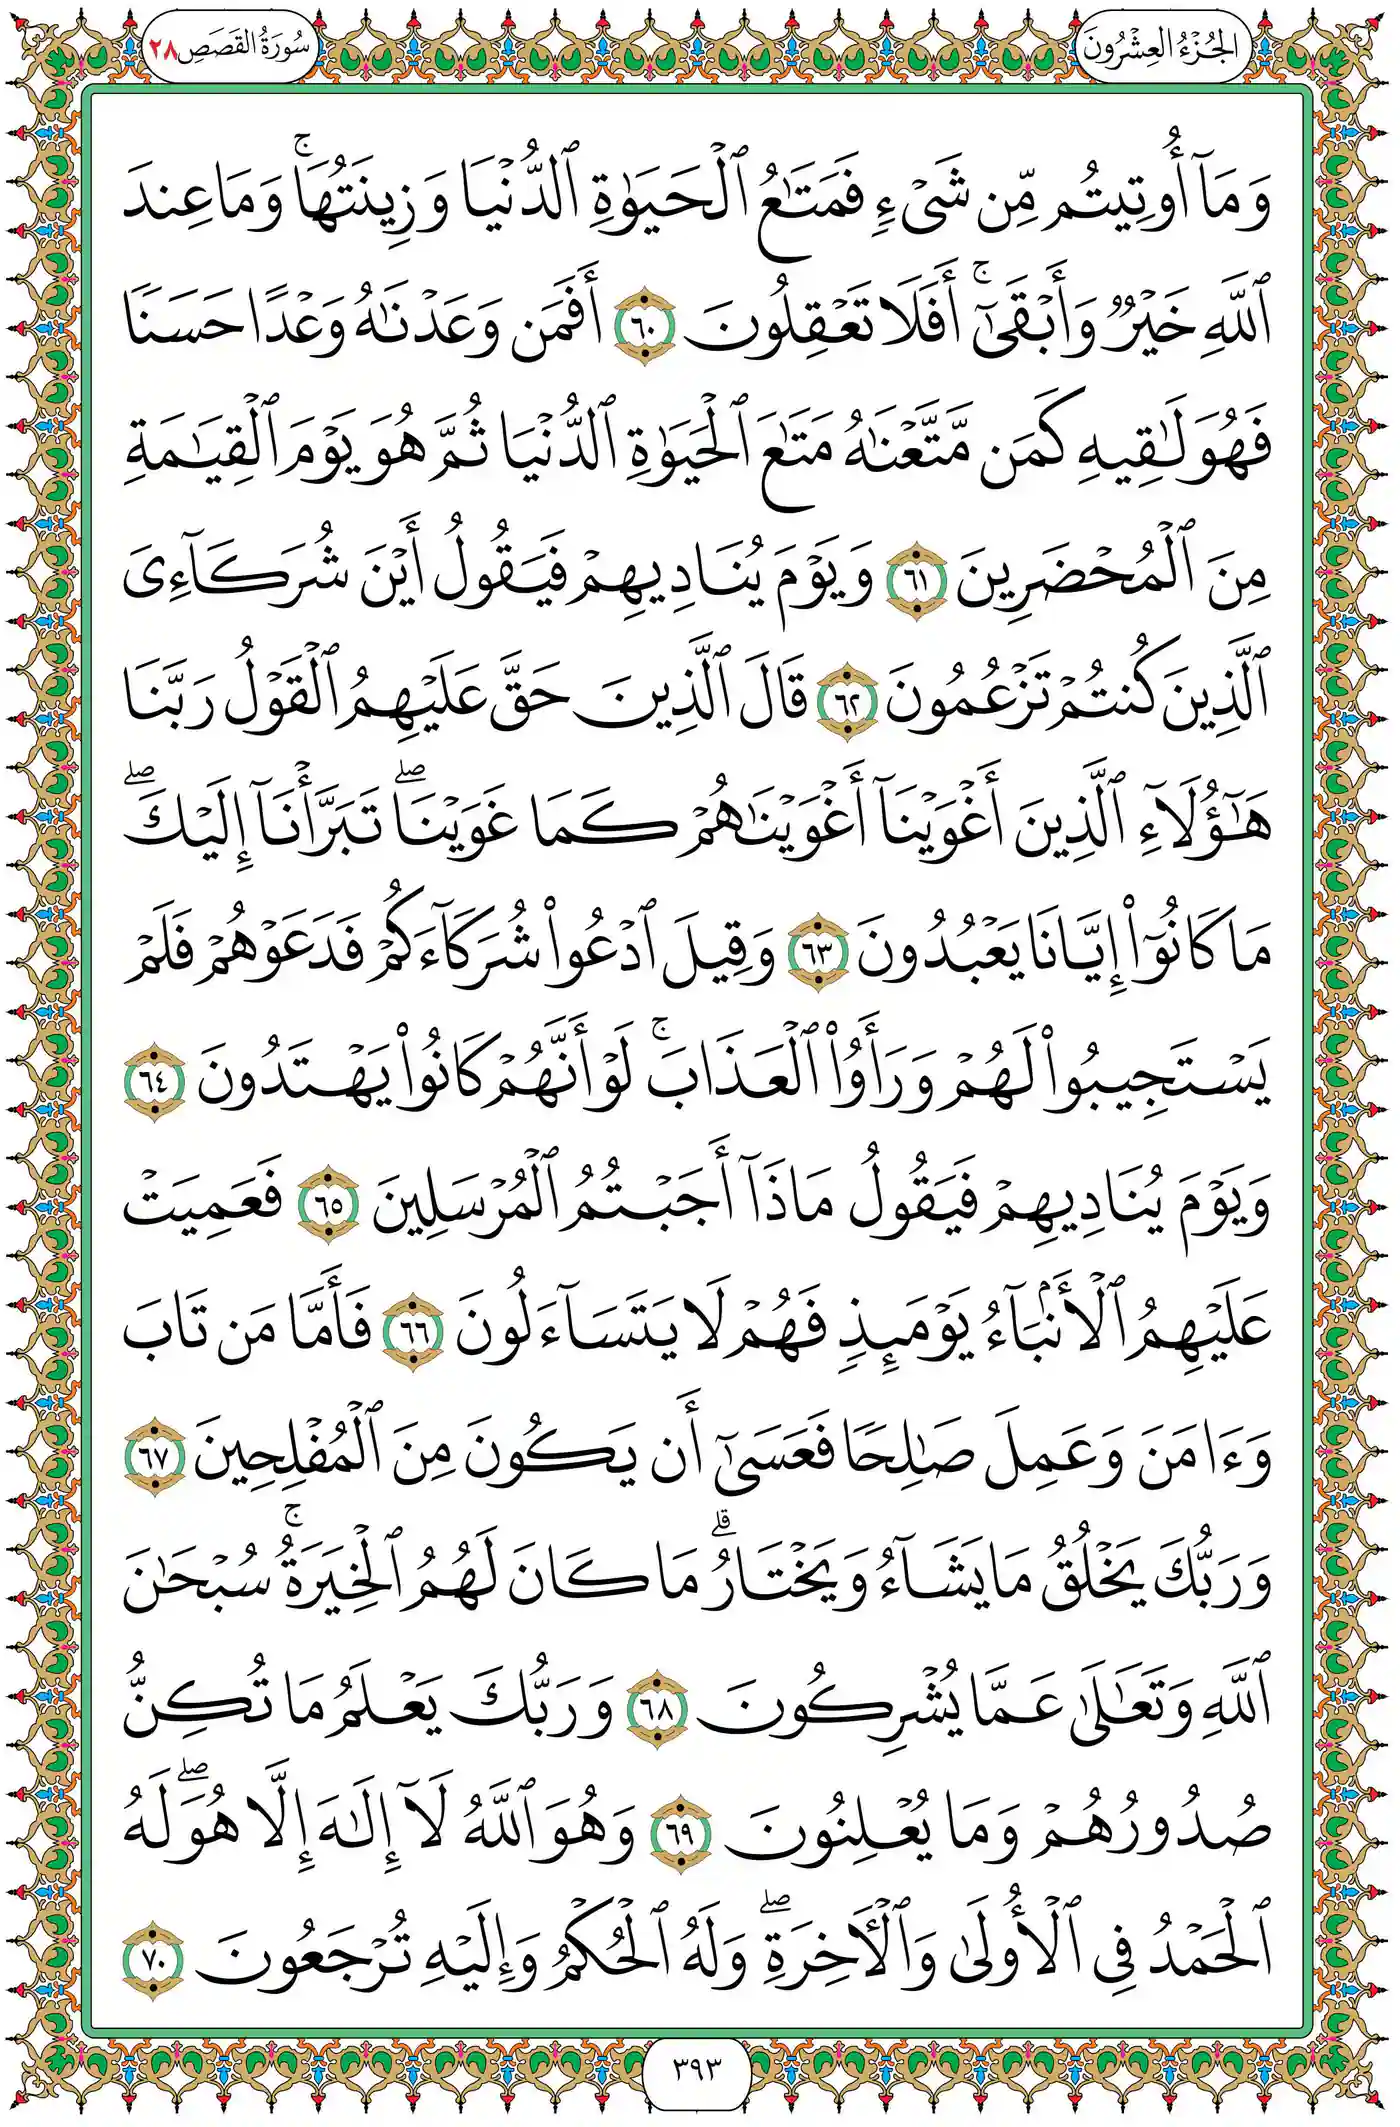 الجُزْءُ العِشْرُونَ
سُورَةُ القَصَصِ ٢٨
وَمَآ أُوتِيتُم مِّن شَىْءٍ فَمَتَٰعُ ٱلْحَيَوٰةِ ٱلدُّنْيَا وَزِينَتُهَاۚ وَمَا عِندَ
ٱللَّهِ خَيْرٌ وَأَبْقَىٰٓۚ أَفَلَا تَعْقِلُونَ ٦٠ أَفَمَن وَعَدْنَٰهُ وَعْدًا حَسَنًا
فَهُوَ لَٰقِيهِ كَمَن مَّتَّعْنَٰهُ مَتَٰعَ ٱلْحَيَوٰةِ ٱلدُّنْيَا ثُمَّ هُوَ يَوْمَ ٱلْقِيَٰمَةِ
مِنَ ٱلْمُحْضَرِينَ ٦١ وَيَوْمَ يُنَادِيهِمْ فَيَقُولُ أَيْنَ شُرَكَآءِىَ
ٱلَّذِينَ كُنتُمْ تَزْعُمُونَ ٦٢ قَالَ ٱلَّذِينَ حَقَّ عَلَيْهِمُ ٱلْقَوْلُ رَبَّنَا
هَٰٓؤُلَآءِ ٱلَّذِينَ أَغْوَيْنَآ أَغْوَيْنَٰهُمْ كَمَا غَوَيْنَاۖ تَبَرَّأْنَآ إِلَيْكَۖ
مَا كَانُوٓا۟ إِيَّانَا يَعْبُدُونَ ٦٣ وَقِيلَ ٱدْعُوا۟ شُرَكَآءَكُمْ فَدَعَوْهُمْ فَلَمْ
يَسْتَجِيبُوا۟ لَهُمْ وَرَأَوُا۟ ٱلْعَذَابَۚ لَوْ أَنَّهُمْ كَانُوا۟ يَهْتَدُونَ ٦٤
وَيَوْمَ يُنَادِيهِمْ فَيَقُولُ مَاذَآ أَجَبْتُمُ ٱلْمُرْسَلِينَ ٦٥ فَعَمِيَتْ
عَلَيْهِمُ ٱلْأَنۢبَآءُ يَوْمَئِذٍ فَهُمْ لَا يَتَسَآءَلُونَ ٦٦ فَأَمَّا مَن تَابَ
وَءَامَنَ وَعَمِلَ صَٰلِحًا فَعَسَىٰٓ أَن يَكُونَ مِنَ ٱلْمُفْلِحِينَ ٦٧
وَرَبُّكَ يَخْلُقُ مَا يَشَآءُ وَيَخْتَارُۗ مَا كَانَ لَهُمُ ٱلْخِيَرَةُۚ سُبْحَٰنَ
ٱللَّهِ وَتَعَٰلَىٰ عَمَّا يُشْرِكُونَ ٦٨ وَرَبُّكَ يَعْلَمُ مَا تُكِنُّ
صُدُورُهُمْ وَمَا يُعْلِنُونَ ٦٩ وَهُوَ ٱللَّهُ لَآ إِلَٰهَ إِلَّا هُوَۖ لَهُ
ٱلْحَمْدُ فِى ٱلْأُولَىٰ وَٱلْءَاخِرَةِۖ وَلَهُ ٱلْحُكْمُ وَإِلَيْهِ تُرْجَعُونَ ٧٠
٣٩٣